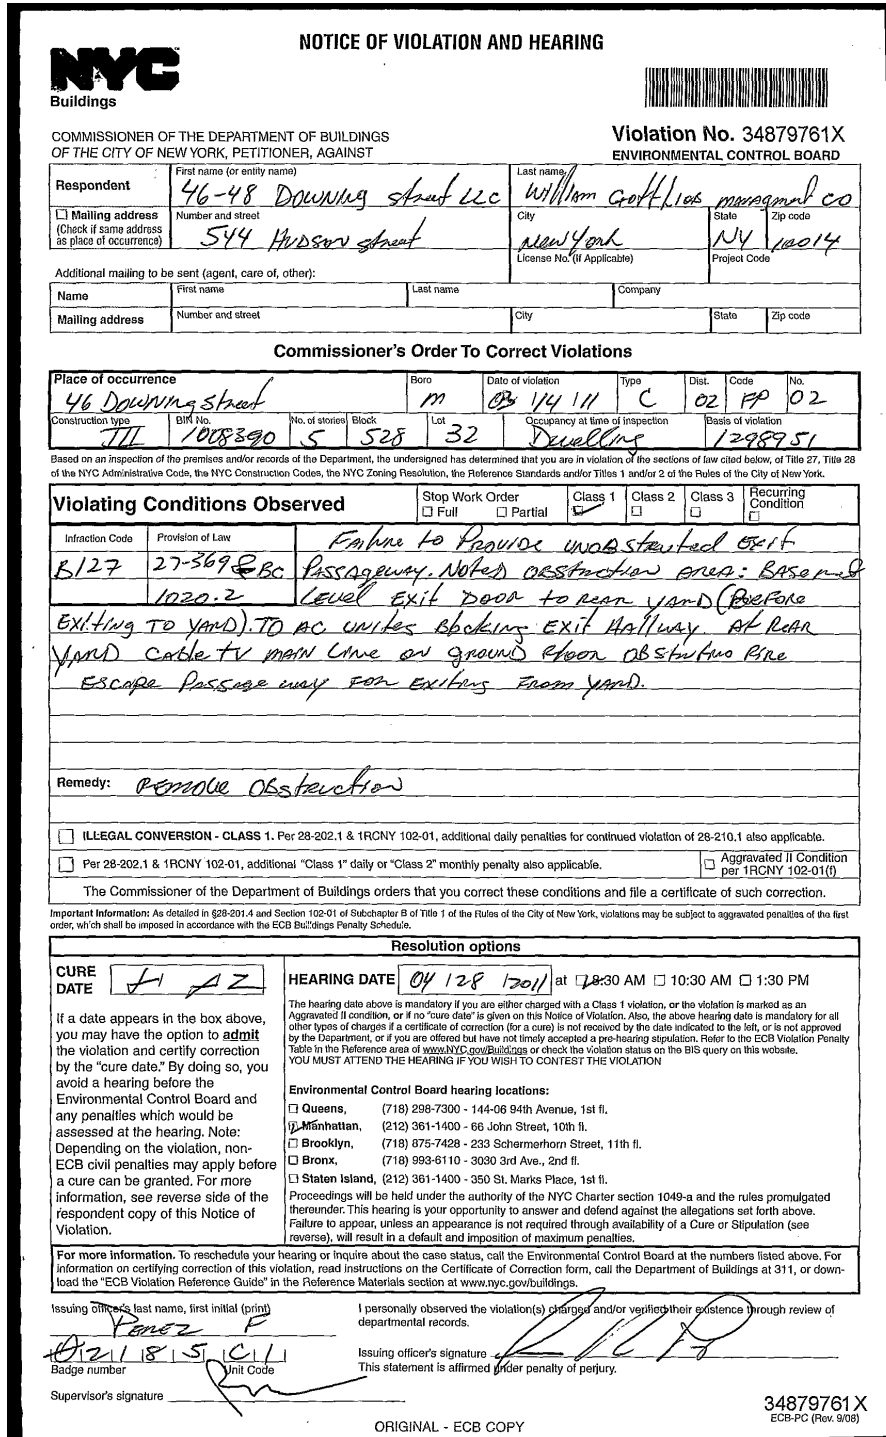 NOTICE OF VIOLATION AND HEARING
NYC
Buildings
COMMISSIONER OF THE DEPARTMENT OF BUILDINGS
OF THE CITY OF NEW YORK, PETITIONER, AGAINST
Violation No. 34879761X
ENVIRONMENTAL CONTROL BOARD
Respondent
First name (or entity name)
46-48 Downing street LLC
Last name
William Gottlieb managment co
☐ Mailing address
(Check if same address
as place of occurrence)
Number and street
544 Hudson street
City
New York
State
NY
Zip code
10014
License No. (If Applicable)
Project Code
Additional mailing to be sent (agent, care of, other):
Name
First name
Last name
Company
Mailing address
Number and street
City
State
Zip code
Commissioner's Order To Correct Violations
Place of occurrence
46 Downing street
Boro
M
Date of violation
03/4/11
Type
C
Dist.
02
Code
FP
No.
02
Construction type
III
BIN No.
1008390
No. of stories
5
Block
528
Lot
32
Occupancy at time of inspection
Dwelling
Basis of violation
1298951
Based on an inspection of the premises and/or records of the Department, the undersigned has determined that you are in violation of the sections of law cited below, of Title 27, Title 28
of the NYC Administrative Code, the NYC Construction Codes, the NYC Zoning Resolution, the Reference Standards and/or Titles 1 and/or 2 of the Rules of the City of New York.
Violating Conditions Observed
Stop Work Order
☐ Full ☐ Partial
Class 1
Class 2
☐
Class 3
☐
Recurring
Condition
☐
Infraction Code
B127
Provision of Law
27-369 & BC
1020.2
Failure to Provide unobstructed exit
Passageway. Noted obstruction area: Basement
Level Exit Door to rear yard (Before
Exiting to yard). To AC unites Blocking Exit Hallway. At Rear
Yard Cable tv main line on ground floor obstuting fire
Escape Passage way for Exiting From yard.
Remedy: Remove Obstruction
☐ ILLEGAL CONVERSION - CLASS 1. Per 28-202.1 & 1RCNY 102-01, additional daily penalties for continued violation of 28-210.1 also applicable.
☐ Per 28-202.1 & 1RCNY 102-01, additional "Class 1" daily or "Class 2" monthly penalty also applicable.
☐ Aggravated II Condition
per 1RCNY 102-01(f)
The Commissioner of the Department of Buildings orders that you correct these conditions and file a certificate of such correction.
Important Information: As detailed in §28-201.4 and Section 102-01 of Subchapter B of Title 1 of the Rules of the City of New York, violations may be subject to aggravated penalties of the first
order, which shall be imposed in accordance with the ECB Buildings Penalty Schedule.
Resolution options
CURE
DATE
HAZ
If a date appears in the box above,
you may have the option to admit
the violation and certify correction
by the "cure date." By doing so, you
avoid a hearing before the
Environmental Control Board and
any penalties which would be
assessed at the hearing. Note:
Depending on the violation, non-
ECB civil penalties may apply before
a cure can be granted. For more
information, see reverse side of the
respondent copy of this Notice of
Violation.
HEARING DATE 04/28/2011 at 8:30 AM ☐ 10:30 AM ☐ 1:30 PM
The hearing date above is mandatory if you are either charged with a Class 1 violation, or the violation is marked as an
Aggravated II condition, or if no "cure date" is given on this Notice of Violation. Also, the above hearing date is mandatory for all
other types of charges if a certificate of correction (for a cure) is not received by the date indicated to the left, or is not approved
by the Department, or if you are offered but have not timely accepted a pre-hearing stipulation. Refer to the ECB Violation Penalty
Table in the Reference area of www.NYC.gov/Buildings or check the violation status on the BIS query on this website.
YOU MUST ATTEND THE HEARING IF YOU WISH TO CONTEST THE VIOLATION
Environmental Control Board hearing locations:
☐ Queens, (718) 298-7300 - 144-06 94th Avenue, 1st fl.
Manhattan, (212) 361-1400 - 66 John Street, 10th fl.
☐ Brooklyn, (718) 875-7428 - 233 Schermerhorn Street, 11th fl.
☐ Bronx, (718) 993-6110 - 3030 3rd Ave., 2nd fl.
☐ Staten Island, (212) 361-1400 - 350 St. Marks Place, 1st fl.
Proceedings will be held under the authority of the NYC Charter section 1049-a and the rules promulgated
thereunder. This hearing is your opportunity to answer and defend against the allegations set forth above.
Failure to appear, unless an appearance is not required through availability of a Cure or Stipulation (see
reverse), will result in a default and imposition of maximum penalties.
For more information. To reschedule your hearing or inquire about the case status, call the Environmental Control Board at the numbers listed above. For
information on certifying correction of this violation, read instructions on the Certificate of Correction form, call the Department of Buildings at 311, or down-
load the "ECB Violation Reference Guide" in the Reference Materials section at www.nyc.gov/buildings.
Issuing officer's last name, first initial (print)
Perez F
I personally observed the violation(s) charged and/or verified their existence through review of
departmental records.
02185 C1
Badge number Unit Code
Issuing officer's signature
This statement is affirmed under penalty of perjury.
Supervisor's signature
34879761X
ECB-PC (Rev. 9/08)
ORIGINAL - ECB COPY